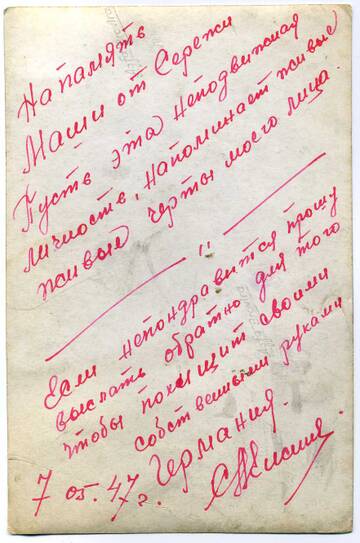 На память
Маши от Сережи
Пусть эта неподвижная
личность, напоминает живые
живые черты моего лица.
"
Если непондравится прошу
выслать обратно для того
чтобы похищит своими
собствеными руками
Германия.
7 05. 47 г.